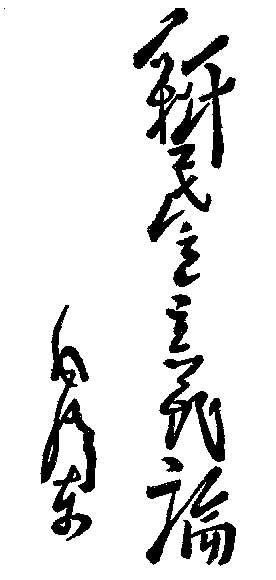 新民主主義論
毛澤东